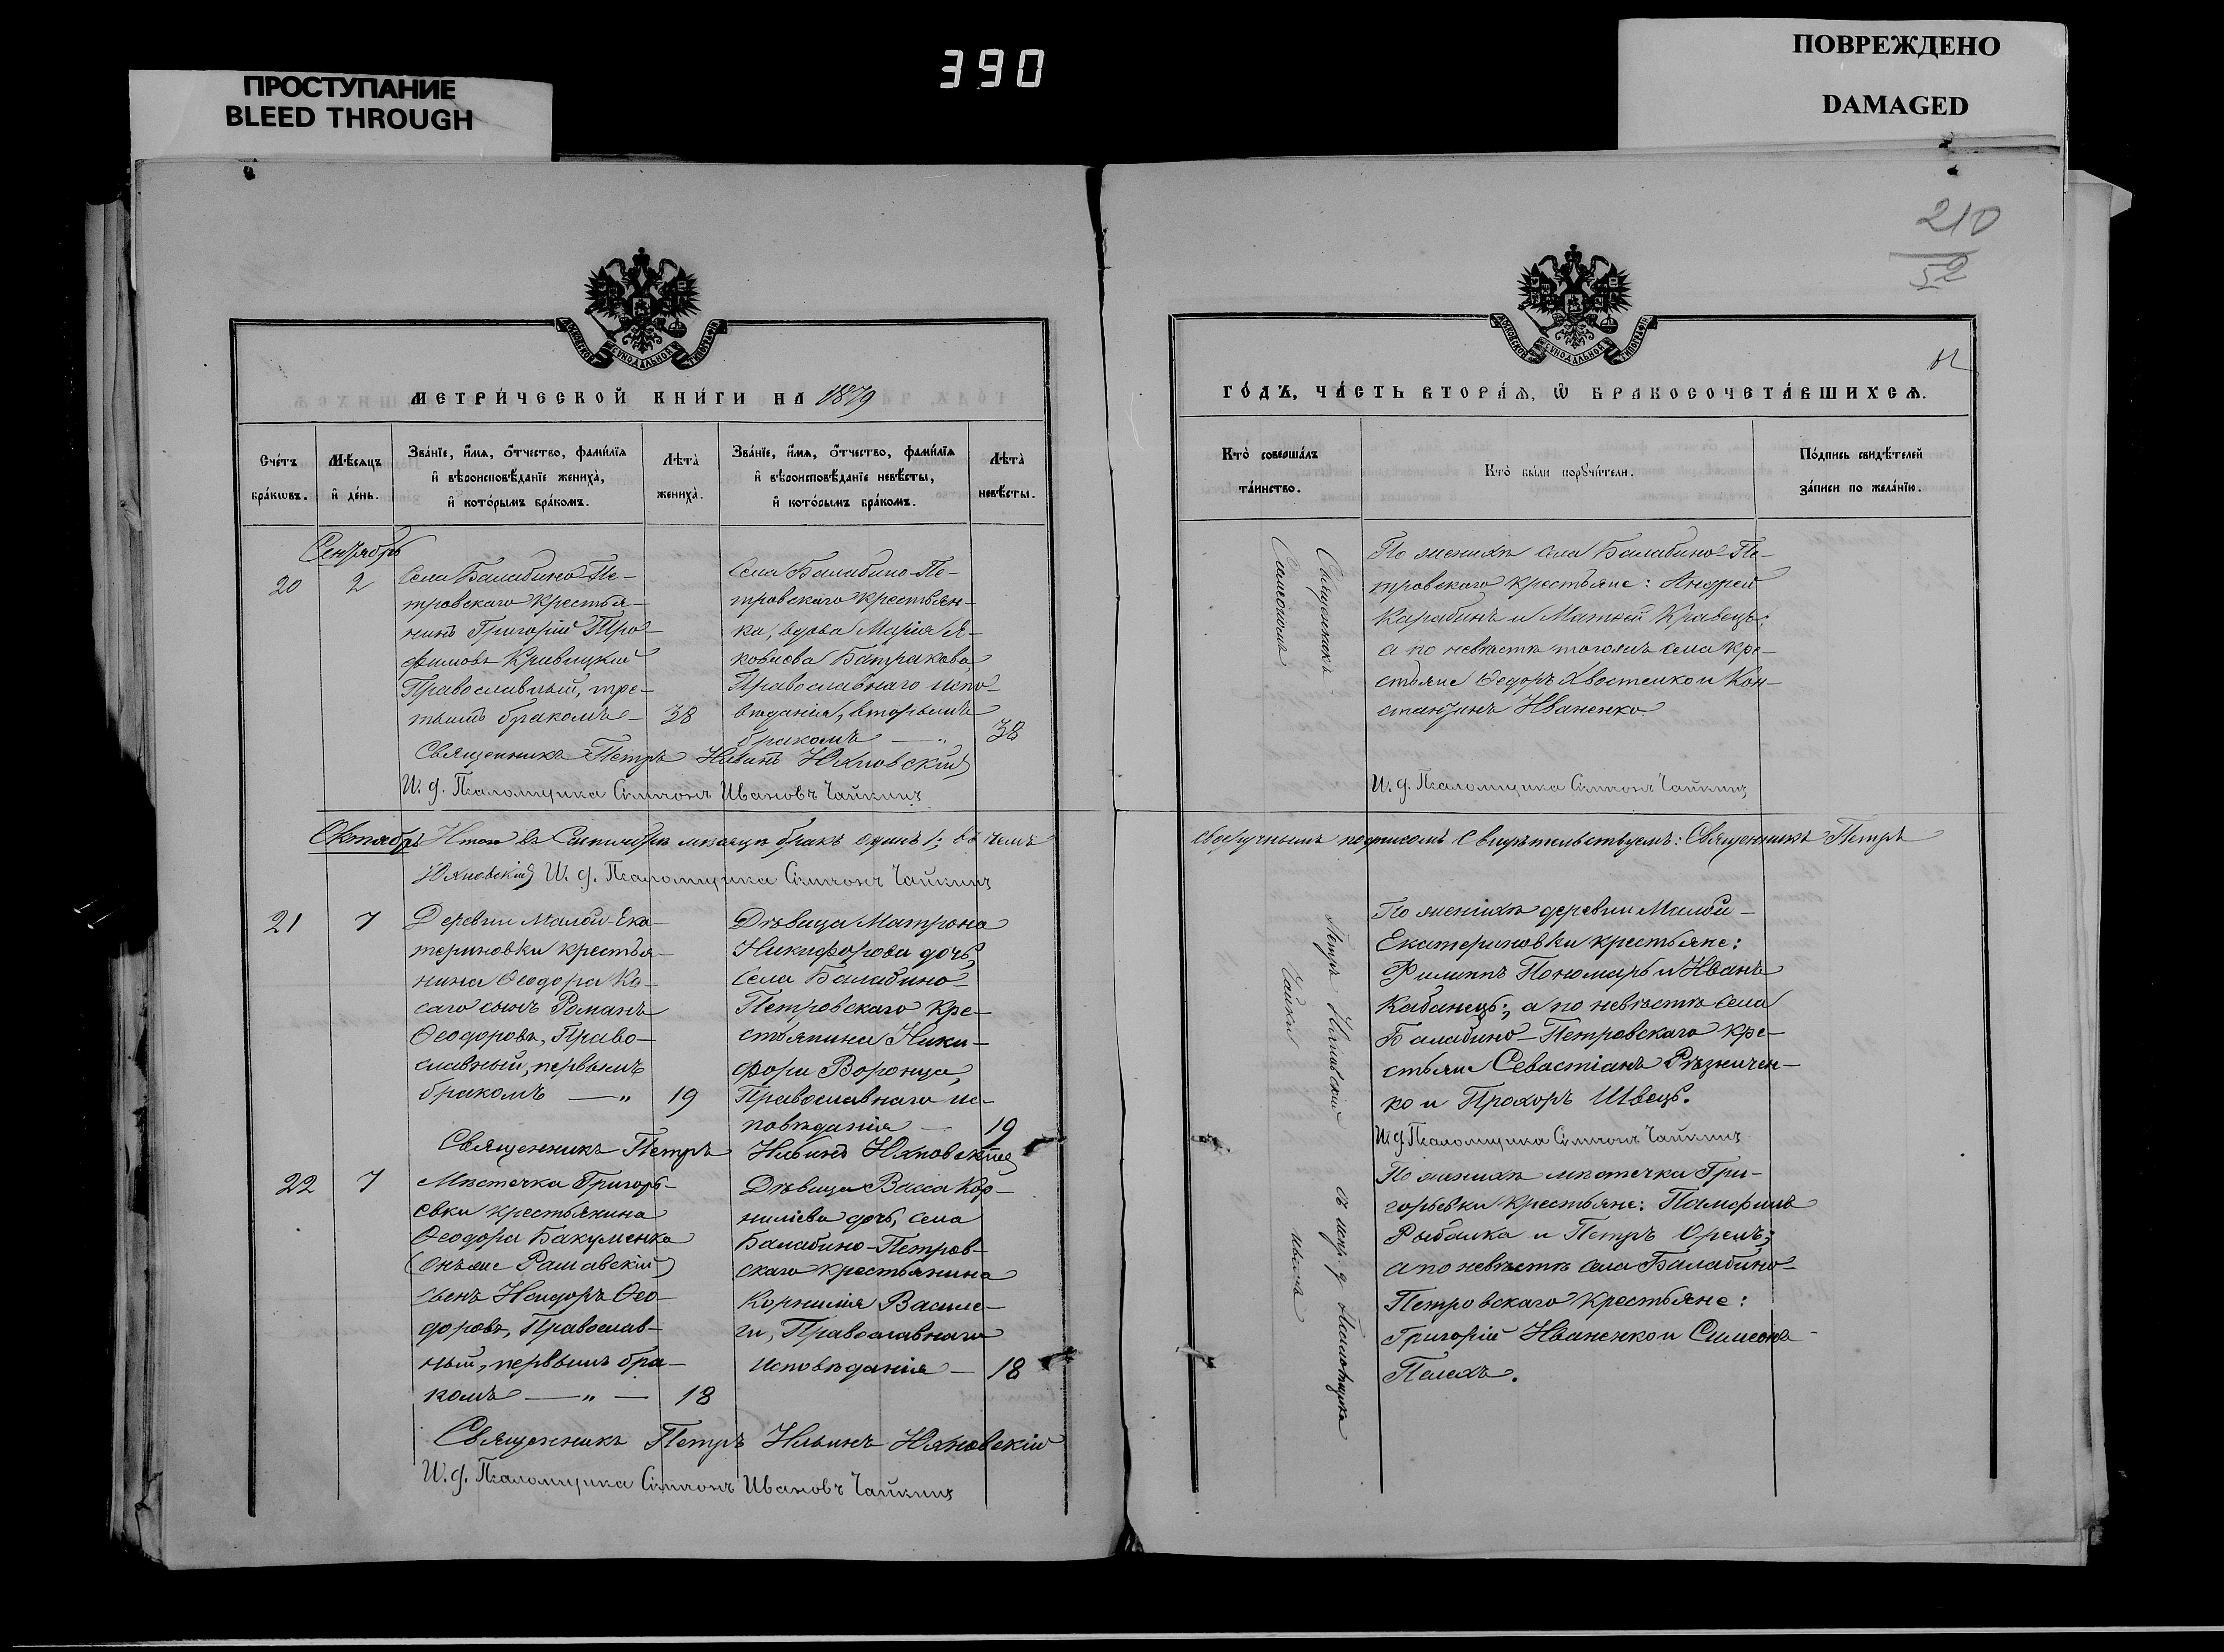 390
ПРОСТУПАНИЕ
BLEED THROUGH
ПОВРЕЖДЕНО
DAMAGED
210
52
МОСКОВСКОЙ СѴНОДАЛЬНОЙ ТИПОГРАФІИ
МЕТРИ́ЧЕСКОЙ КНИ́ГИ НА 1879
Сче́тъ бра́кѡвъ.
Мѣ́сяцъ и҆ де́нь.
Зва́нїе, и҆́мѧ, ѻ҆́тчество, фами́лїѧ
и҆ вѣроисповѣ́данїе жениха̀,
и҆ кото́рымъ бра́комъ.
Лѣ́та̀ жениха̀.
Зва́нїе, и҆́мѧ, ѻ҆́тчество, фами́лїѧ
и҆ вѣроисповѣ́данїе невѣ́сты,
и҆ кото́рымъ бра́комъ.
Лѣ́та̀ невѣ́сты.
Сентябрь
20
2
Села Балабино-Пе-
тровскаго крестья-
нинъ Григорій Тро-
фимовъ Кривицкій
Православный, тре-
тьимъ бракомъ – 38
Села Балабино-Пе-
тровскаго крестьян-
ка, вдова Марія Я-
ковлева Батракова
Православнаго испо-
вѣданія, вторымъ
бракомъ — " 38
Священникъ Петръ Ильинъ Юхновскій
И. д. Псаломщика Симеонъ Ивановъ Чайкинъ
Октябрь Итого въ Сентябрѣ мѣсяцѣ бракъ одинъ 1; въ чемъ
Юхновскій И. д. Псаломщика Симеонъ Чайкинъ
21
7
Деревни Малой-Ека-
териновки крестья-
нина Ѳеодора Ко-
саго сынъ Романъ
Ѳеодоровъ, Право-
славный, первымъ
бракомъ — " 19
Дѣвица Матрона
Никифорова дочь,
села Балабино-
Петровскаго кре-
стьянина Ники-
фора Воронца,
Православнаго ис-
повѣданія — 19
Священникъ Петръ Ильинъ Юхновскій
22
7
Мѣстечка Григорь-
евки крестьянина
Ѳеодора Бакуменка
(онъ же Рашавскій)
сынъ Исидоръ Ѳео-
доровъ, Православ-
ный, первымъ бра-
комъ — " — 18
Дѣвица Васса Кор-
нилiева дочь, села
Балабино-Петров-
скаго крестьянина
Корнилія Василе-
ги, Православнаго
исповѣданія — 18
Священникъ Петръ Ильинъ Юхновскій
И. д. Псаломщика Симеонъ Ивановъ Чайкинъ
МОСКОВСКОЙ СѴНОДАЛЬНОЙ ТИПОГРАФІИ
ГО́ДЪ, ЧА́СТЬ ВТОРА́Ѧ, Ѽ БРАКОСОЧЕТА́ВШИХСѦ.
Кто̀ соверша́лъ
та́инство.
Кто̀ бы́ли порꙋчи́тели.
По́дпись свидѣ́телей
за́писи по жела́нїю.
Священникъ
По женихѣ села Балабино-Пе-
тровскаго крестьяне: Андрей
Карабинъ и Матѳей Кравецъ;
а по невѣстѣ тогожъ села кре-
стьяне Ѳедоръ Хвостенко и Кон-
стантинъ Иваненко.
И. д. Псаломщика Симеонъ Чайкинъ
своеручнымъ подписомъ свидѣтельствуемъ: Священникъ Петръ
По женихѣ деревни Малой-
Екатериновки крестьяне:
Филиппъ Пономарь и Иванъ
Кабанецъ; а по невѣстѣ села
Балабино-Петровскаго кре-
стьяне Севастіанъ Рѣзничен-
ко и Прохоръ Швецъ.
И. д. Псаломщика Симеонъ Чайкинъ
По женихѣ мѣстечка Гри-
горьевки крестьяне: Памфилъ
Рыбалка и Петръ Орелъ;
а по невѣстѣ села Балабино-
Петровскаго крестьяне:
Григорій Иваненко и Симеонъ
Пелехъ.
Петръ
съ испр. д. Псаломщика